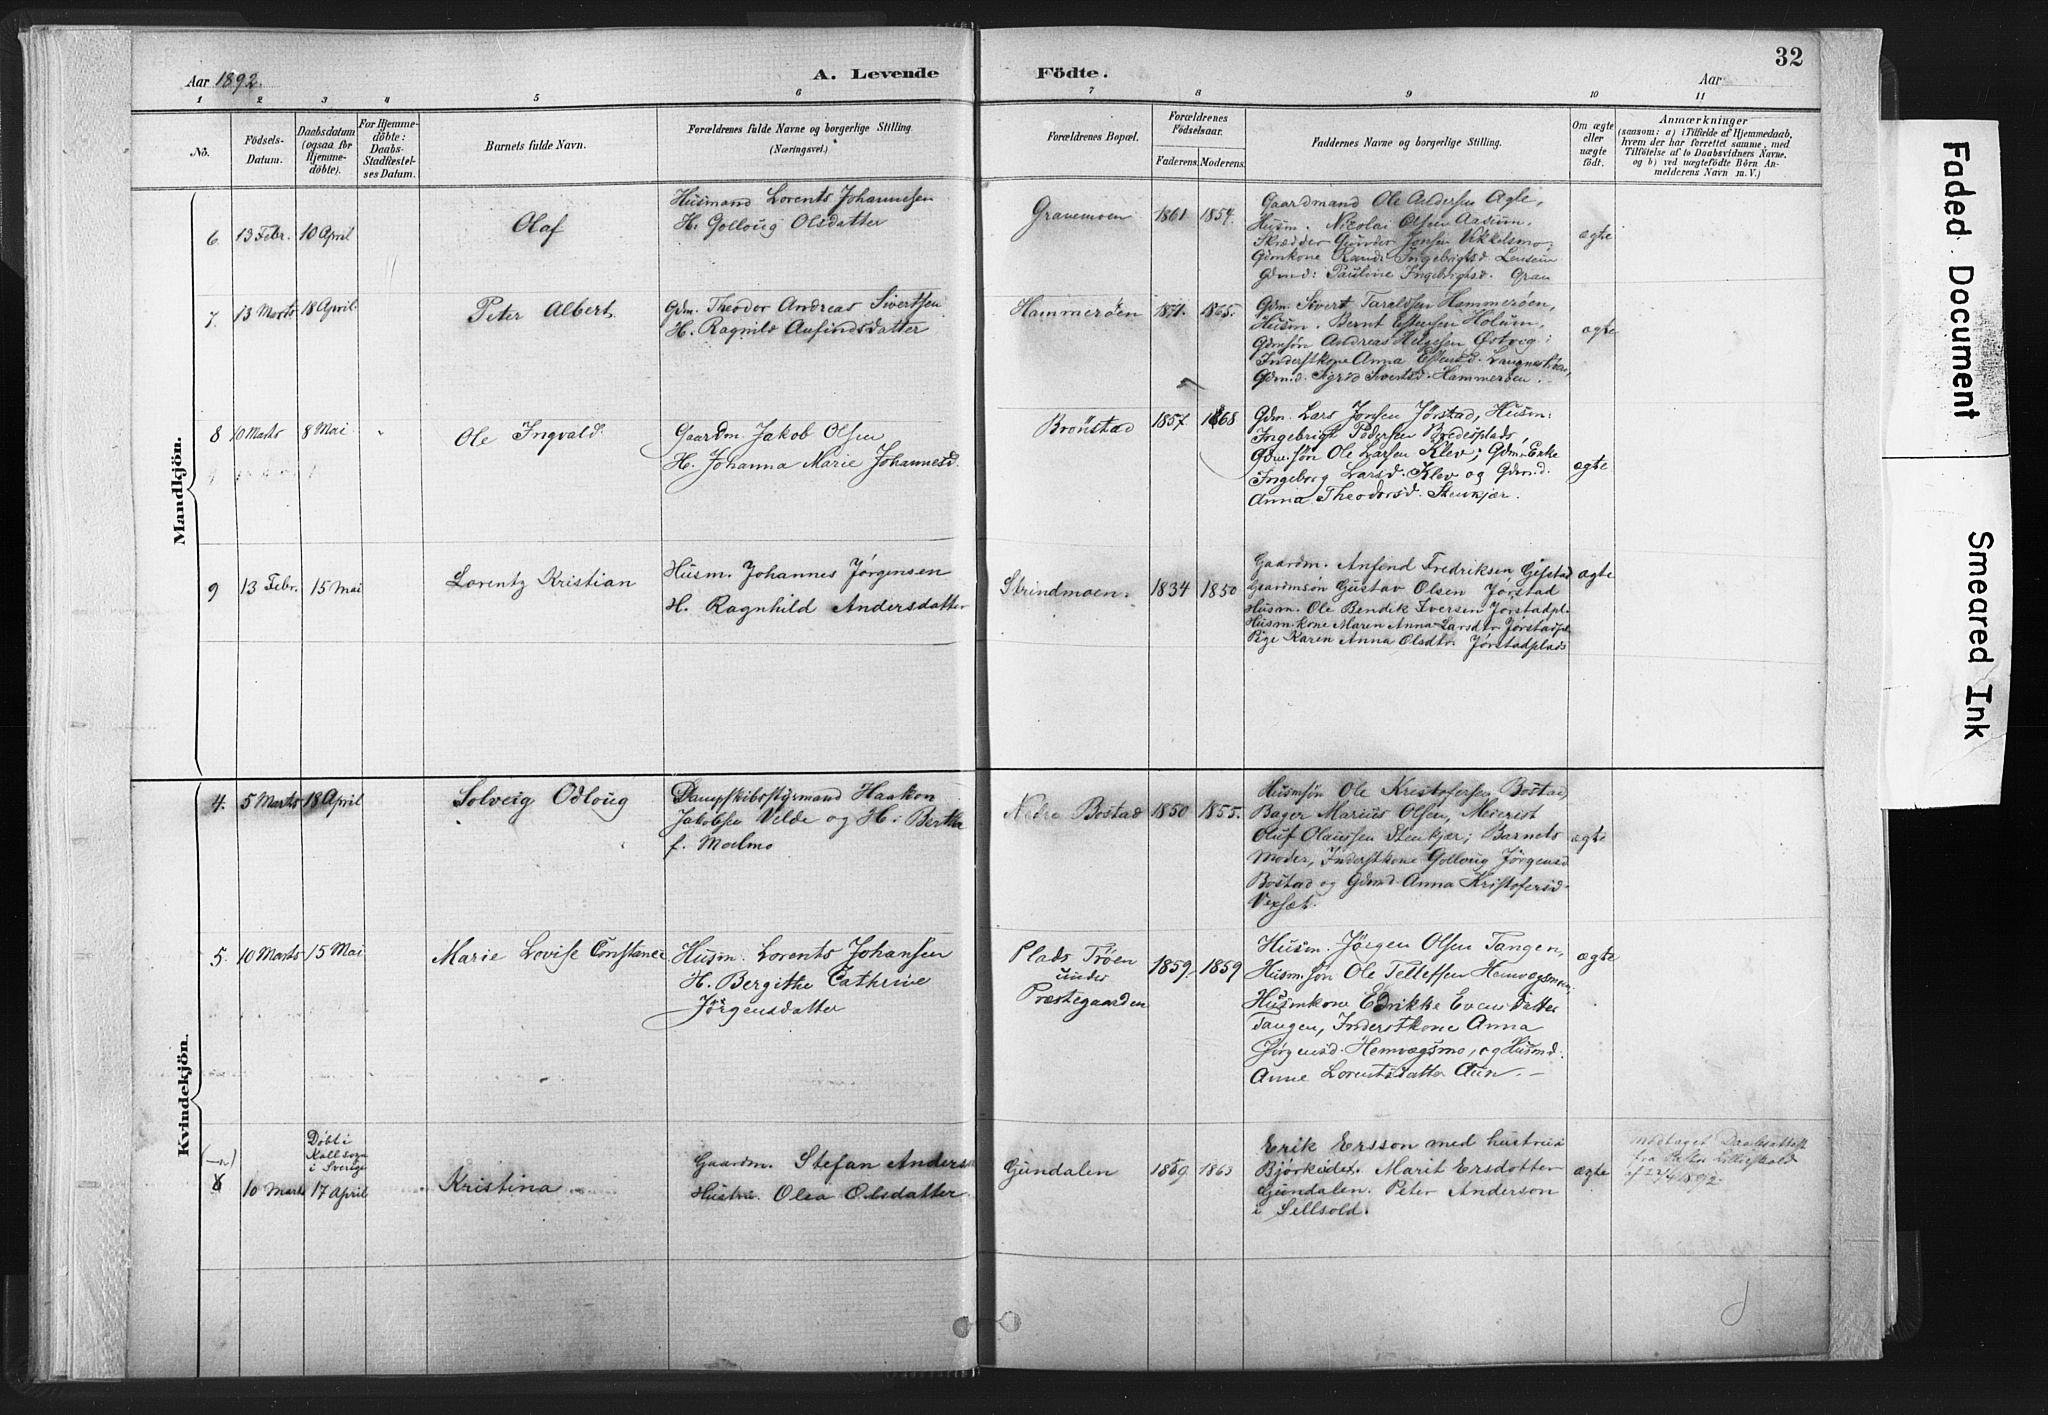 32
Aar 1892.
A. Levende
Födte.
Aar
1 2 3 4 5 6 7 8 9 10 11
No.
Födsels-
Datum.
Daabsdatum
(ogsaa for
Hjemme-
döbte).
For Hjemme-
döbte:
Daabs-
Stadfæstel-
ses Datum.
Barnets fulde Navn.
Forældrenes fulde Navne og borgerlige Stilling
(Næringsvei.)
Forældrenes Bopæl.
Forældrenes
Födselsaar.
Faderens.
Moderens.
Faddernes Navne og borgerlige Stilling.
Om ægte
eller
uægte
födt.
Anmærkninger
(saasom: a) i Tilfælde af Hjemmedaab,
hvem der har forrettet samme, med
Tilföielse af to Daabsvidners Navne,
og b) ved uægtefödte Börn An-
melderens Navn m. V.)
Mandkjön.
6. 13 Febr. 10 April
Olaf
Husmand Lorents Johannesen
H. Golloug Olsdatter
Gravemoen
1861 1854.
Gaardmand Ole
Husm. Nicolai Olsen Aasum.
Skrædder Gunder Jonsen
Gdmkone Randi Ingebrigtsd.
Gdmd: Pauline Ingebrigtsd.
ægte
7. 13 Marts 18 April
Peter Albert
Gdm. Theodor Andreas Sivertsen
H. Ragnild Anfindsdatter
Hammerøen
1871. 1865.
Gdm. Sivert Taraldsen Hammerøen,
Husm. Bernt Estensen Holum,
Gdmsøn Andreas Helgesen Østvig;
Inderstkone Anna Estensd.
Gdmd. Sigrid Sivertsd. Hammerøen.
ægte
8 10 Marts 8 Mai
Ole Ingvald
Gaardm. Jakob Olsen
H. Johanna Marie Johannesd.
Brönstad
1857 1868
Gdm. Lars Jonsen Jørstad, Husm:
Ingebrigt Pedersen Bredesplads,
Gdm.søn Ole Larsen Klev; Gdm.Enke
Ingeborg Larsd. Klev og Gdm.d.
Anna Theodorsd. Stenkjær.
ægte
9 13 Febr. 15 Mai
Lorentz Kristian
Husm. Johannes Jørgensen
H. Ragnhild Andersdatter
Strindmoen.
1834 1850
Gaardm. Anfind Fredriksen Gifstad
Gaardmsøn Gustav Olsen Jørstad
Husm. Ole Bendik Iversen Jørstadpl.
Husm.kone Maren Anna Larsdtr Jørstadpl.
Pige Karen Anna Olsdtr. Jørstadplads
ægte
Kvindekjön.
4. 5 Marts 18 April
Solveig Odloug
Dampskibsstyrmand Haakon
Jakobsen Velde og H. Bertha
f. Malmo
Nedre Bostad
1850 1855.
Husmsön Ole Kristofersen Bostad,
Bager Marius Olsen, Meierist
Oluf Olaussen Stenkjær; Barnets
Moder, Inderstkone Golloug Jørgensd
Bostad og Gdmd Anna Kristofersd.
Vexsæt.
ægte
5. 10 Marts 15 Mai
Marie Lovise Constance
Husm. Lorents Johansen
H. Bergithe Cathrine
Jörgensdatter
Plads Trøen
under
Præstegaarden
1859. 1859
Husm. Jørgen Olsen Tangen,
Husm.søn Ole Tellefsen Hemvægsmoen,
Husmkone Edrikke Evensdatter
Tangen, Inderstkone Anna
Jørgensd. Hemvægsmo, og Husmd.
Anne Lorentsdatter Aun. —
ægte
6 10 Marts
Døbt i
Kallsogn
i Sverige
17 April
Kristina
Gaardm. Stefan Anderss
Hustru. Olea Olsdatter
Gundalen
1869 1863
Erik Ersson med hustru i
Björkedet. Marit Ersdotter
Gundalen. Peter Anderson
i Sellsold.
ægte
modtaget Daabsattest
fra Pastor
af 22/4 1892.
Faded Document
Smeared Ink